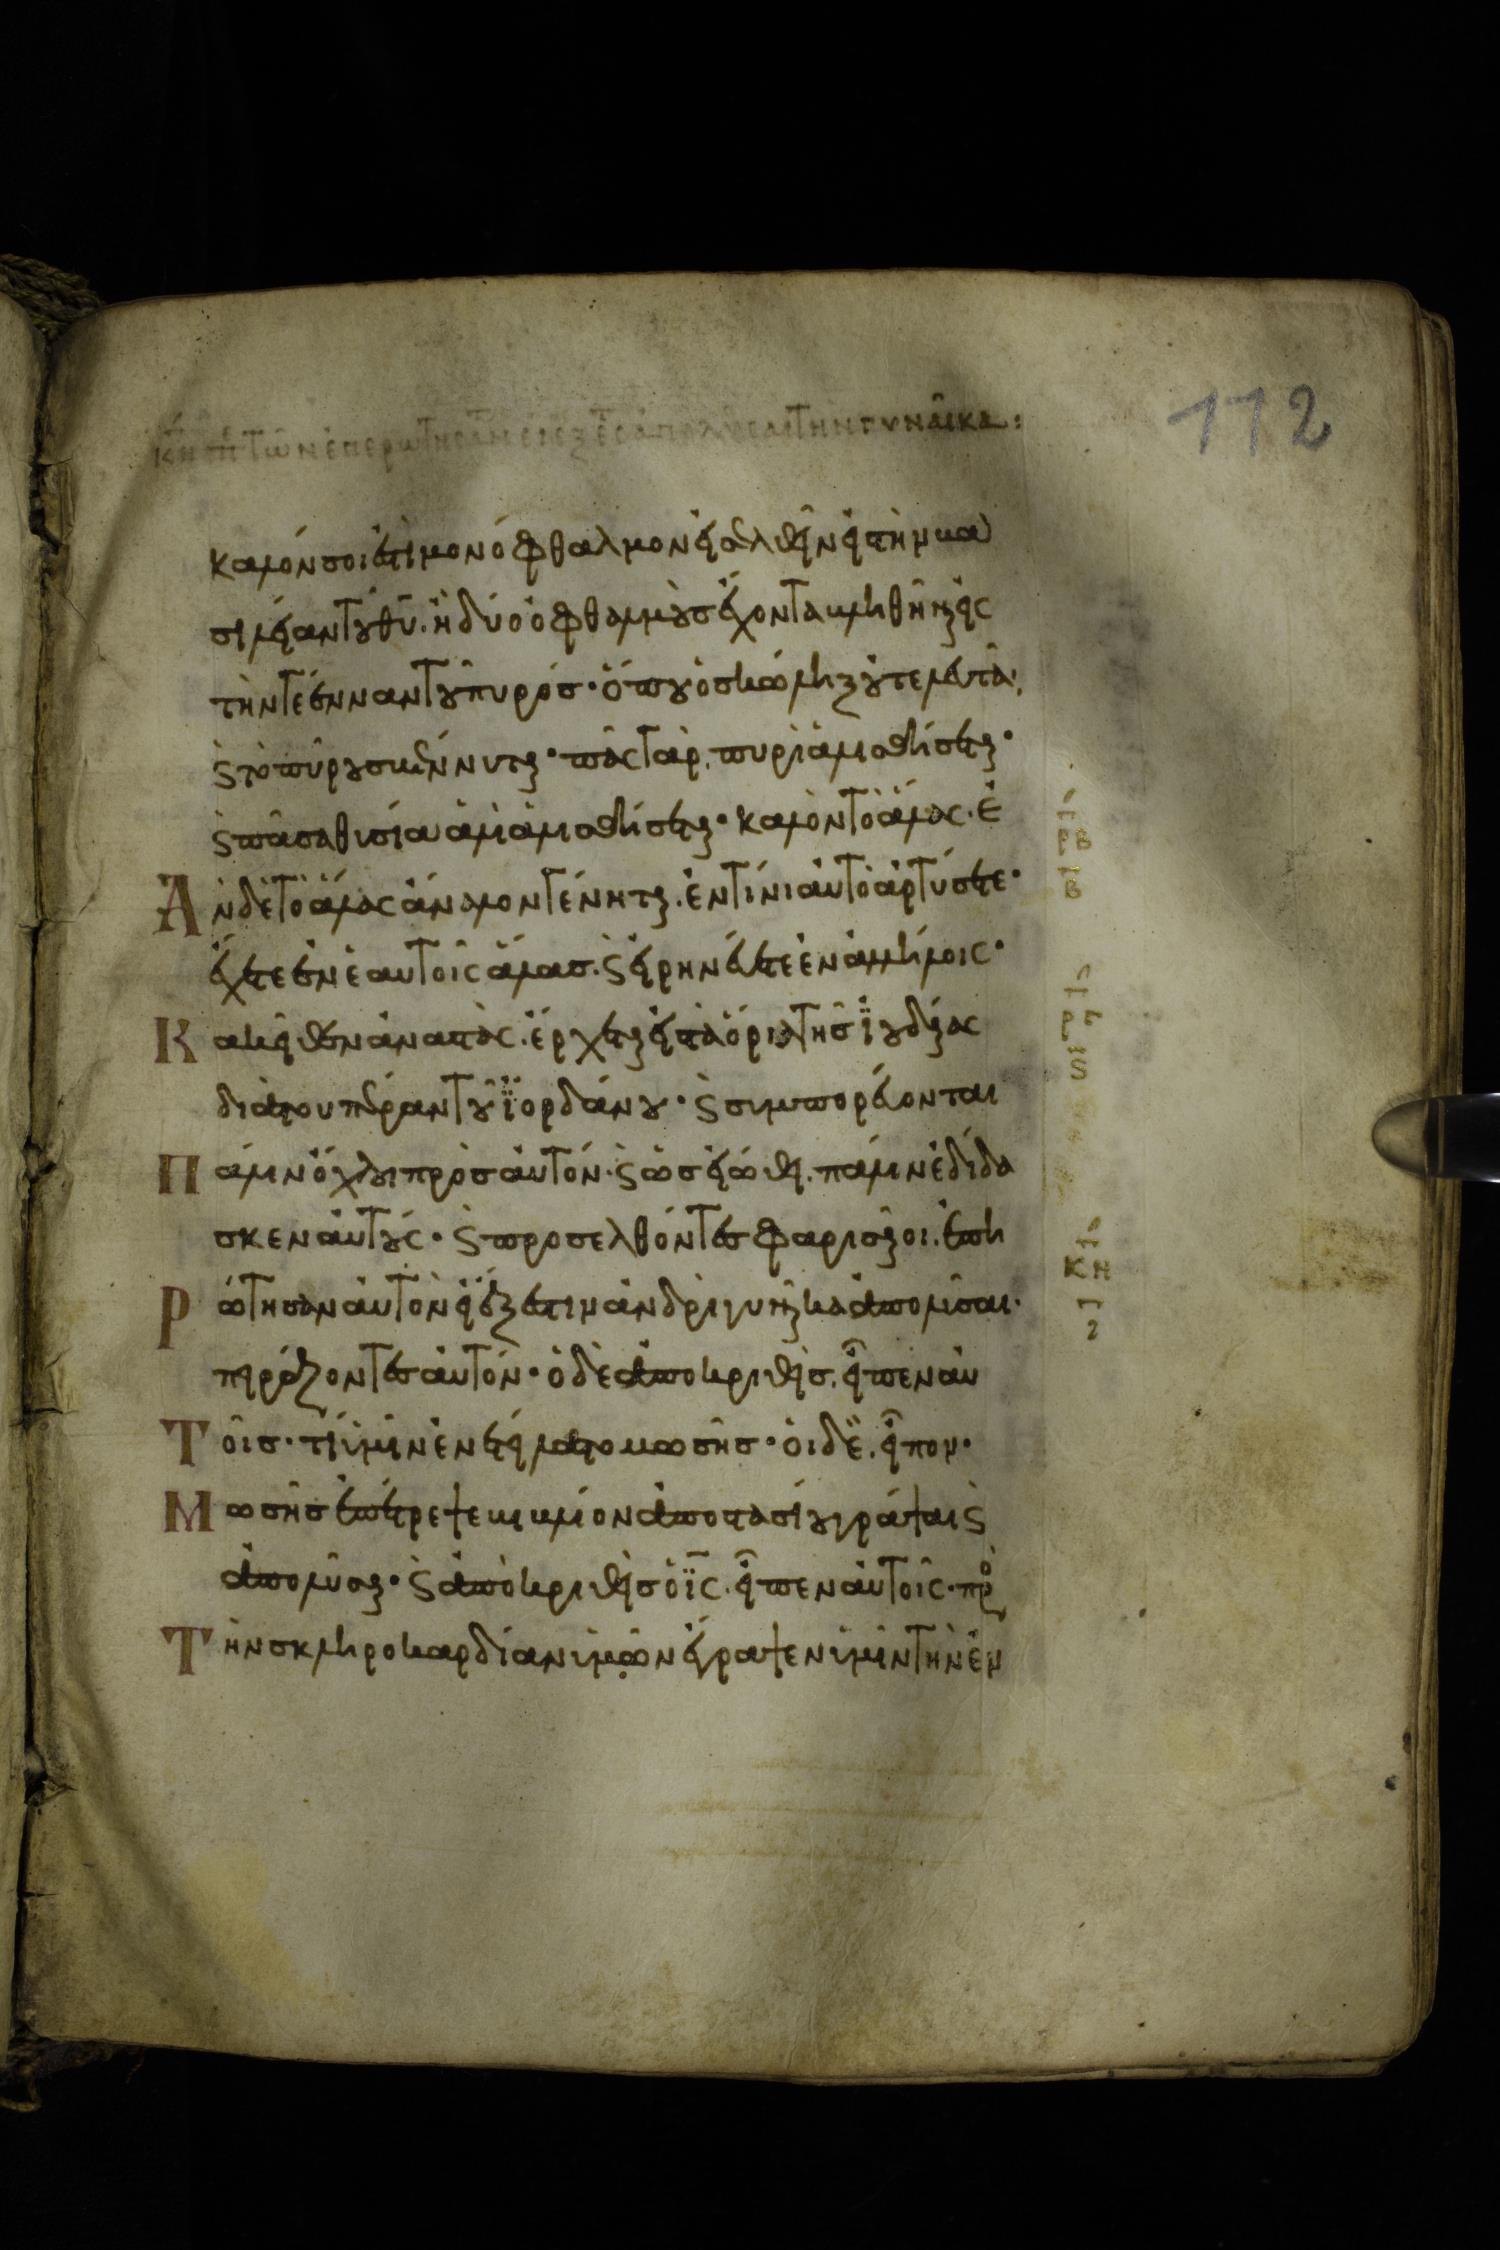 112
κη πε τῶν ἐπερωτησάντ εἰ ἔξεστ ἀπολῦσαι τὴν γυναῖκα:
καλόν σοι ἐστὶ μονόφθαλμον εἰσελθεῖν εἰς τὴν βα
σιλείαν τοῦ θυ. ἢ δύο ὀφθαλμοὺς ἔχοντα βληθῆναι εἰς
τὴν γέενναν τοῦ πυρόσ· ὅπου ὁ σκώληξ οὐ τελευτᾶ·
ϗ τὸ πῦρ οὐ σβέννυται· πᾶς γὰρ, πυρὶ ἁλισθήσεται·
ϗ πᾶσα θυσία ἁλὶ ἁλισθήσεται· καλὸν τὸ ἅλας· ἐ
Ὰν δὲ τὸ ἅλας ἄναλον γένηται. ἐν τίνι αὐτὸ ἀρτύσετε·
ἔχετε ἐν ἑαυτοῖς ἅλασ· ϗ εἰρηνεύετε ἐν ἀλλήλοις·
Κακεῖθεν ἀναστὰς. ἔρχεται εἰς τὰ ὅρια τῆσ ϊουδαίας
διὰ του πέραν τοῦ ϊορδάνου· ϗ συμπορεύονται
Πάλιν ὄχλοι πρὸσ αὐτόν· ϗ ὡσ εἰώθει. πάλιν ἐδίδα
σκεν αὐτούς· ϗ προσελθόντεσ φαρισαῖοι. ἐπη
Ρώτησαν αὐτὸν εἰ ἔξεστιν ἀνδρὶ γυναῖκα ἀπολῦσαι·
πειράζοντεσ αὐτόν· ὁ δὲ ἀποκριθεὶσ. εἶπεν αὐ
Τοῖσ· τί ὑμῖν ἐνετείλατο μωσῆσ· οἱ δὲ. εἶπον·
Μωσῆσ ἐπέτρεψε βιβλίον ἀποστασίου γράψαι ϗ
ἀπολῦσαι· ϗ ἀποκριθεὶσ ὁ ϊς. εἶπεν αὐτοῖς· πρὸ
Τὴν σκληροκαρδίαν ὑμῶν ἔγραψεν ὑμῖν τὴν ἐν
ρβ
β
ρΓ
ϛ
κη